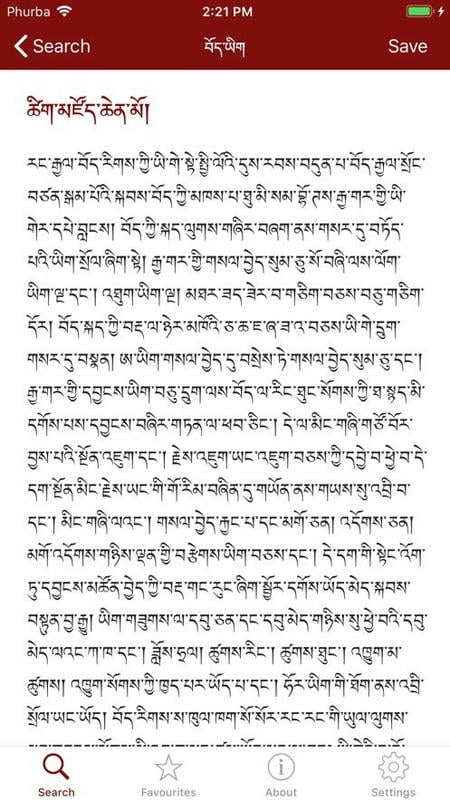 Phurba 2:21 PM
Search བོད་ཡིག Save
ཚིག་མཛོད་ཆེན་མོ།
རང་རྒྱལ་བོད་རིགས་ཀྱི་ཡི་གེ་སྟེ་སྤྱི་ལོའི་དུས་རབས་བདུན་པ་བོད་རྒྱལ་སྲོང་
བཙན་སྒམ་པོའི་སྐབས་བོད་ཀྱི་མཁས་པ་ཐུ་མི་སམ་བྷོ་ཊས་རྒྱ་གར་གྱི་ཡི་
གེར་དཔེ་བླངས། བོད་ཀྱི་སྐད་ལུགས་གཞིར་བཞག་ནས་གསར་དུ་བཏོད་
པའི་ཡིག་སྲོལ་ཞིག་སྟེ། རྒྱ་གར་གྱི་གསལ་བྱེད་སུམ་ཅུ་སོ་བཞི་ལས་ལོག་
ཡིག་ལྔ་དང་། འཐུག་ཡིག་ལྔ། མཐར་ཟད་ཟེར་བ་གཅིག་བཅས་བཅུ་གཅིག་
དོར། བོད་སྐད་ཀྱི་བརྡ་ལ་ཉེར་མཁོའི་ཅ་ཆ་ཇ་ཞ་ཟ་འ་བཅས་ཡི་གེ་དྲུག་
གསར་དུ་བསྣན། ཨ་ཡིག་གསལ་བྱེད་དུ་བསྲེས་ཏེ་གསལ་བྱེད་སུམ་ཅུ་དང་།
རྒྱ་གར་གྱི་དབྱངས་ཡིག་བཅུ་དྲུག་ལས་བོད་ལ་རིང་ཐུང་སོགས་ཀྱི་ཐ་སྙད་མི་
དགོས་པས་དབྱངས་བཞིར་གཏན་ལ་ཕབ་ཅིང་། དེ་ལ་མིང་གཞི་གཙོ་བོར་
བྱས་པའི་སྔོན་འཇུག་དང་། རྗེས་འཇུག་ཡང་འཇུག་བཅས་ཀྱི་དབྱེ་བ་ཕྱེ་བ་དེ་
དག་སྔོན་མིང་རྗེས་ཡང་གི་གོ་རིམ་བཞིན་དུ་གཡོན་ནས་གཡས་སུ་འབྲི་བ་
དང་། མིང་གཞི་ལའང་། གསལ་བྱེད་རྐྱང་པ་དང་མགོ་ཅན། འདོགས་ཅན།
མགོ་འདོགས་གཉིས་ལྡན་གྱི་བརྩེགས་ཡིག་བཅས་དང་། དེ་དག་གི་སྟེང་འོག་
ཏུ་དབྱངས་མཚོན་བྱེད་ཀྱི་བརྡ་གང་རུང་ཞིག་སྦྱོར་དགོས་ཡོད་མེད་སྐབས་
བསྟུན་བྱ་རྒྱུ། ཡིག་གཟུགས་ལ་དབུ་ཅན་དང་དབུ་མེད་གཉིས་སུ་ཕྱེ་བའི་དབུ་
མེད་ལའང་ཀ་ཁ་དང་། ཟློས་ཧྲལ། ཚུགས་རིང་། ཚུགས་ཐུང་། འཁྱུག་མ་
ཚུགས། འཁྱུག་སོགས་ཀྱི་ཁྱད་པར་ཡོད་པ་དང་། ཧོར་ཡིག་གི་ཐོག་ནས་འབྲི་
སྲོལ་ཡང་ཡོད། བོད་རིགས་ས་ཁུལ་ཁག་སོ་སོར་རང་རང་གི་ཡུལ་ལུགས་
Search Favourites About Settings